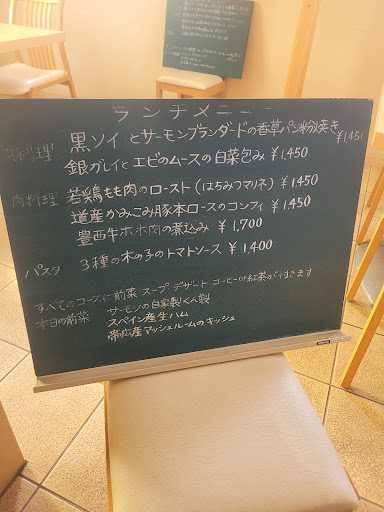 ランチメニュー
魚料理 黒ソイとサーモンブランダードの香草パン粉焼き ¥1,451
銀ガレイとエビのムースの白菜包み ¥1,450
肉料理 若鶏もも肉のロースト(はちみつマリネ) ¥1,450
道産かみこみ豚本ロースのコンフィ ¥1,450
豊西牛ホホ肉の煮込み ¥1,700
パスタ 3種の木の子のトマトソース ¥1,400
すべてのコースに前菜 スープ デザート コーヒーor紅茶が付きます
本日の前菜 サーモンの自家製くん製
スペイン産生ハム
帯広産マッシュルームのキッシュ